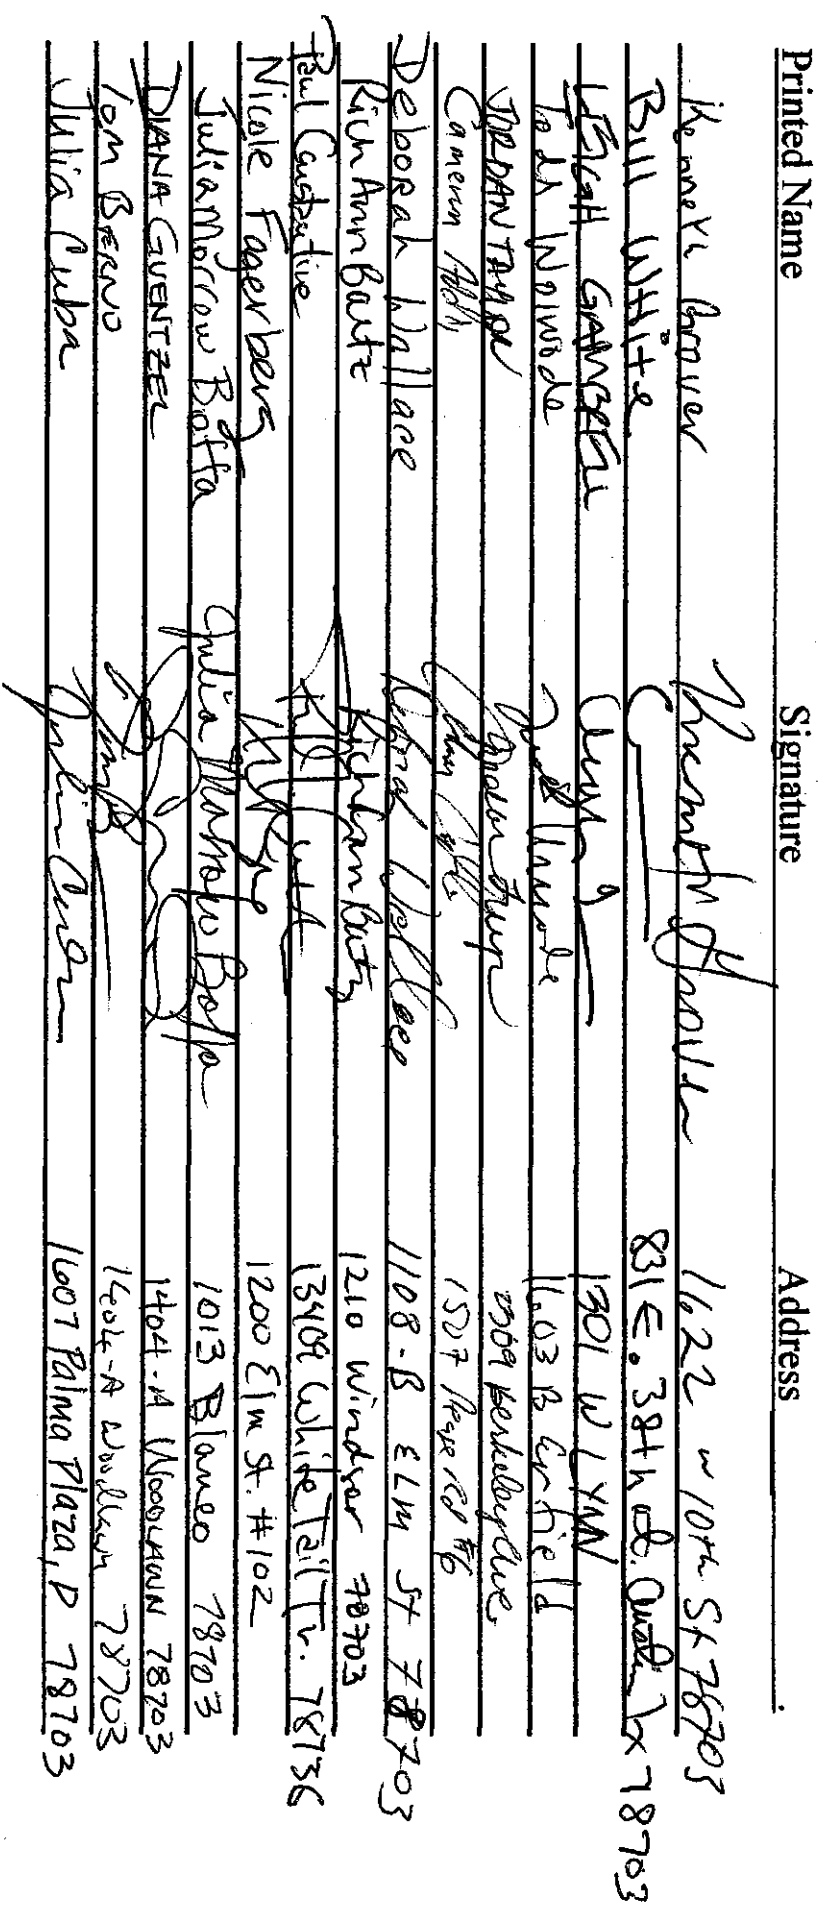 Printed Name Signature Address
Kenneth Grover Kenneth Grover 1622 W 10th St 78703
Bill White 831 E. 38th st. Austin Tx 78703
LEIGH 1301 W LYNN
Todd Woiwode 1603 B Enfield
JORDAN TAYLOR 2309 Berkeley Ave.
Cameron 1507 #6
Deborah Wallace Deborah Wallace 1108-B ELM St 78703
Rich Ann Baitz Rich Ann Baitz 1210 Windsor 78703
Paul 13409 White Tail Tr. 78736
Nicole Fagerberg 1200 Elm St. #102
Julia Morrow Botta Julia Morrow Botta 1013 Blanco 78703
DIANA GUENTZEL 1404-A WOODLAWN 78703
TOM BERNO 1404-A Woodlawn 78703
Julia Cuba Julia Cuba 1607 Palma Plaza, D 78703